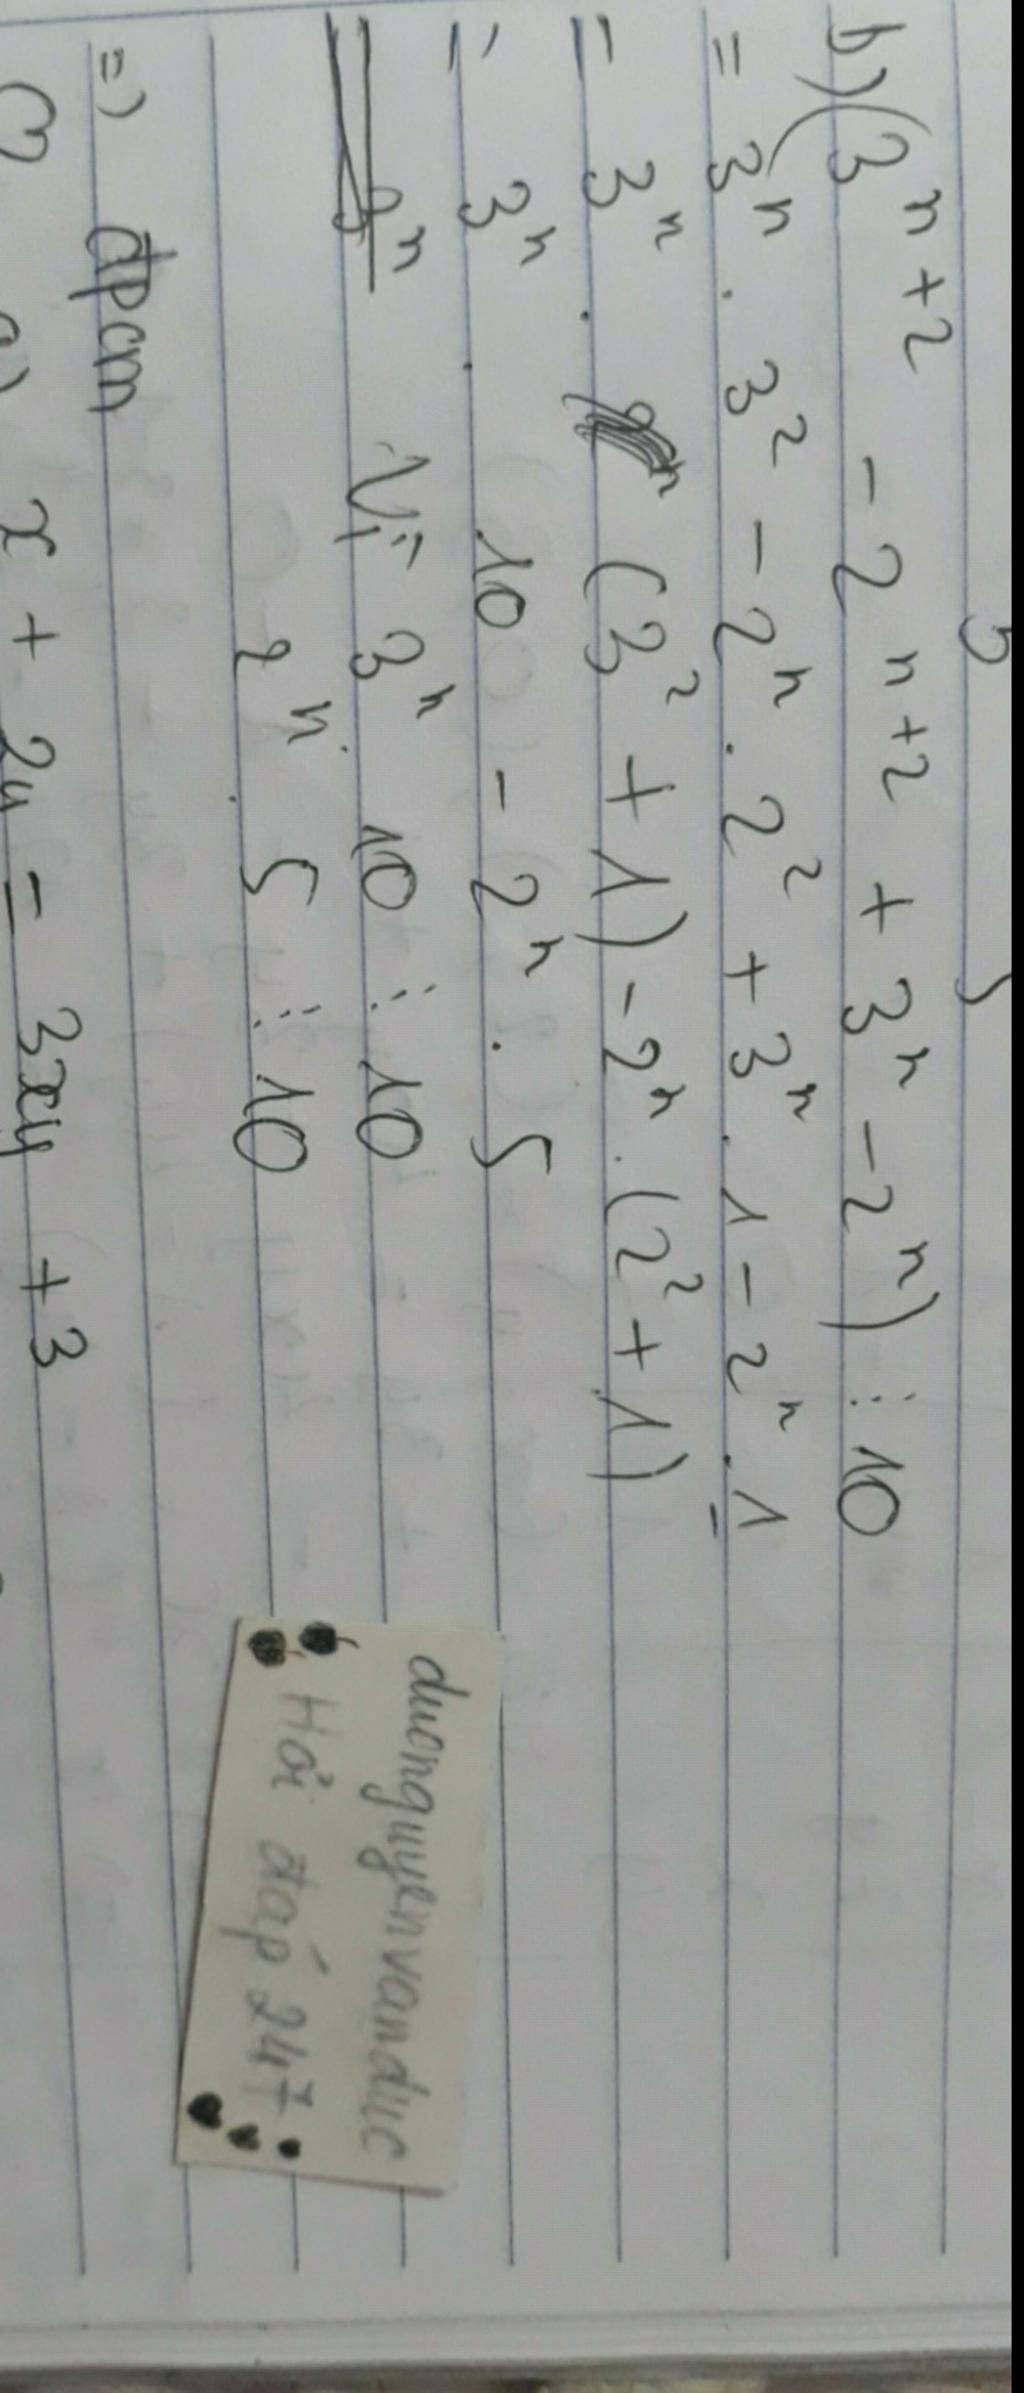 b) (3ⁿ⁺² - 2ⁿ⁺² + 3ⁿ - 2ⁿ) ⋮ 10
= 3ⁿ . 3² - 2ⁿ . 2² + 3ⁿ . 1 - 2ⁿ . 1
= 3ⁿ . (3² + 1) - 2ⁿ . (2² + 1)
= 3ⁿ . 10 - 2ⁿ . 5
Vì 3ⁿ 10 ⋮ 10
2ⁿ . 5 ⋮ 10
=) đpcm
x + 2y = 3xy + 3
duonguyenvanduc
Hỏi đáp 247